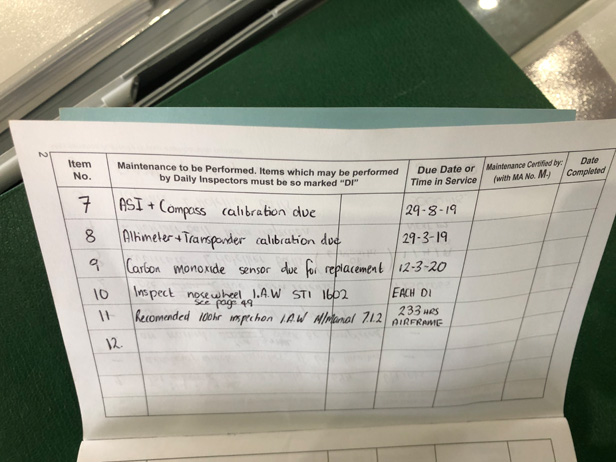 2
Item No.
Maintenance to be Performed. Items which may be performed by Daily Inspectors must be so marked "DI"
Due Date or Time in Service
Maintenance Certified by: (with MA No. M-)
Date Completed
7 ASI + Compass calibration due 29-8-19
8 Altimeter + Transponder calibration due 29-3-19
9 Carbon monoxide sensor due for replacement 12-3-20
10 Inspect nosewheel I.A.W STI 1602 EACH DI
see page 49
11 Recomended 100hr inspection I.A.W M/Manual 7.1.2 233 HRS AIRFRAME
12.